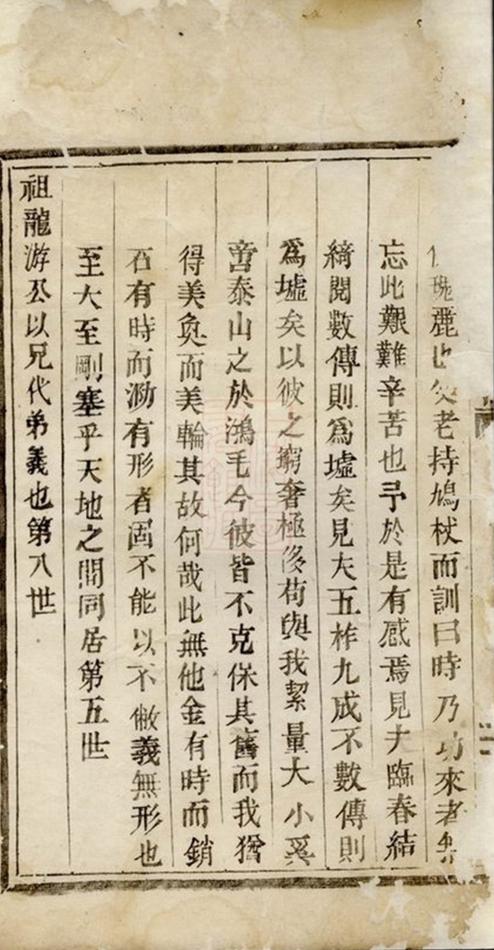 瑰麗也父老持鳩杖而訓曰時乃功來者毋
忘此艱難辛苦也予於是有感焉見夫臨春結
綺閱數傳則為墟矣見夫五柞九成不數傳則
為墟矣以彼之窮奢極侈茍與我絜量大小奚
啻泰山之於鴻毛今彼皆不克保其舊而我猶
得美奐而美輪其故何哉此無他金有時而銷
石有時而泐有形者固不能以不敝義無形也
至大至剛塞乎天地之間同居第五世
祖龍游公以兄代弟義也第八世